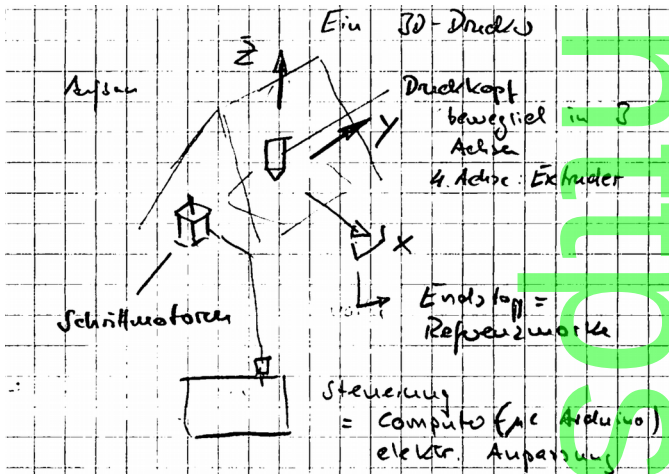 Ein 3D-Drucker
Aufbau
Z
Druckkopf
beweglich in 3
Achsen
Y
4. Achse: Extruder
X
Schrittmotoren
Endstop =
Referenzmarke
Steuerung
= Computer (µC Arduino)
elektr. Anpassung